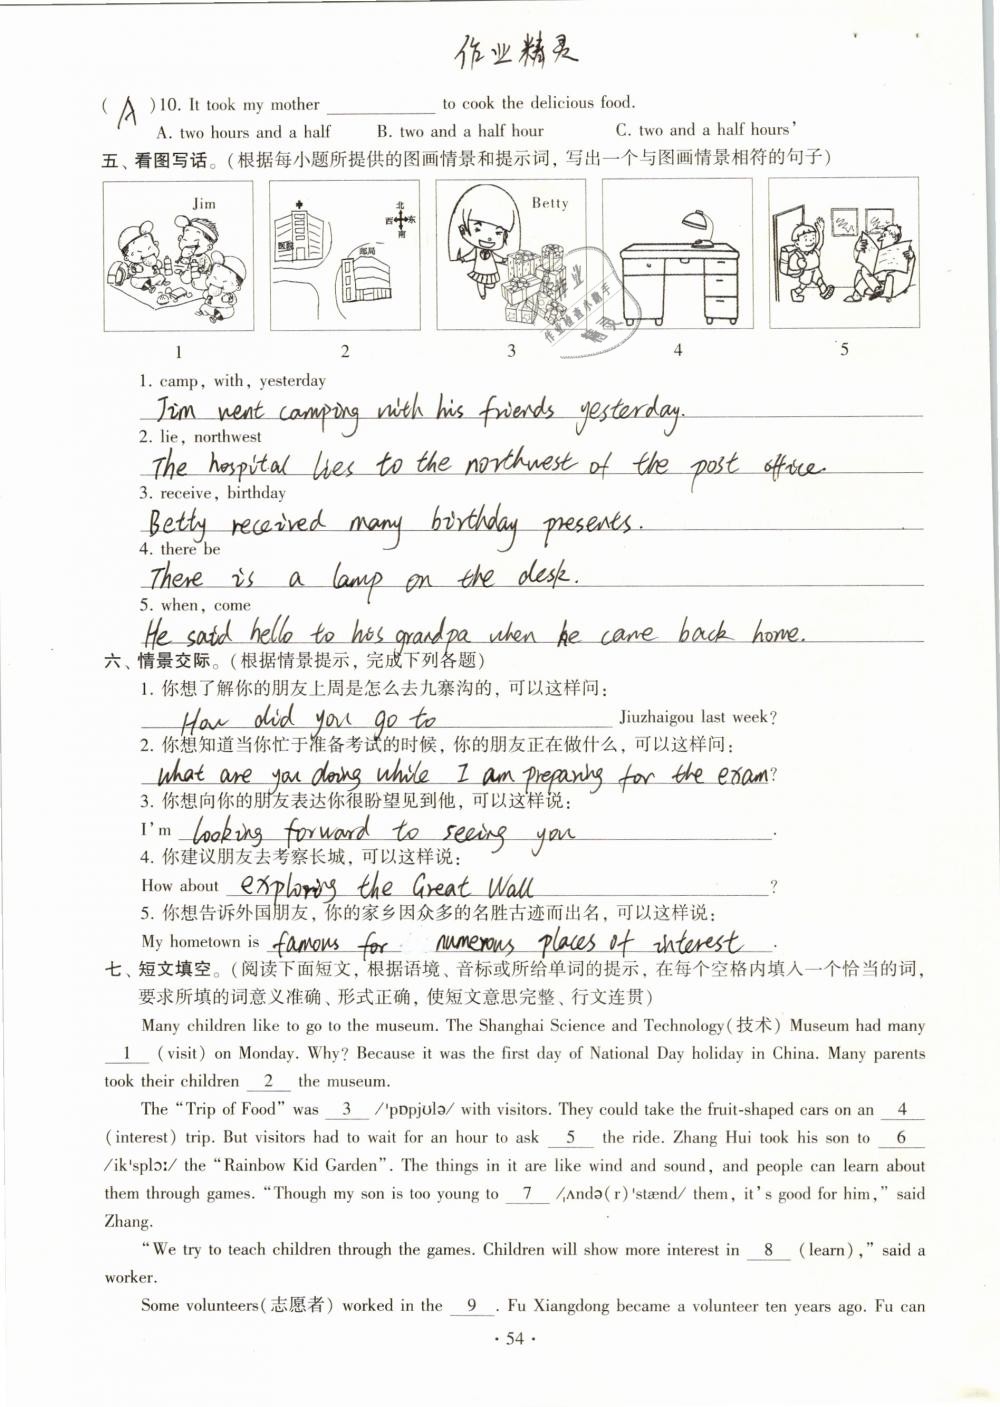 作业精灵
( A )10. It took my mother ____________ to cook the delicious food.
A. two hours and a half B. two and a half hour C. two and a half hours’
五、看图写话。(根据每小题所提供的图画情景和提示词, 写出一个与图画情景相符的句子)
Jim 医院 邮局 北 西 东 南 Betty
作业
作业检查小助手
精灵
1 2 3 4 5
1. camp, with, yesterday
Jim went camping with his friends yesterday.
2. lie, northwest
The hospital lies to the northwest of the post office.
3. receive, birthday
Betty received many birthday presents.
4. there be
There is a lamp on the desk.
5. when, come
He said hello to his grandpa when he came back home.
六、情景交际。(根据情景提示, 完成下列各题)
1. 你想了解你的朋友上周是怎么去九寨沟的, 可以这样问:
How did you go to Jiuzhaigou last week?
2. 你想知道当你忙于准备考试的时候, 你的朋友正在做什么, 可以这样问:
What are you doing while I am preparing for the exam?
3. 你想向你的朋友表达你很盼望见到他, 可以这样说:
I’m looking forward to seeing you.
4. 你建议朋友去考察长城, 可以这样说:
How about exploring the Great Wall?
5. 你想告诉外国朋友, 你的家乡因众多的名胜古迹而出名, 可以这样说:
My hometown is famous for numerous places of interest.
七、短文填空。(阅读下面短文, 根据语境、音标或所给单词的提示, 在每个空格内填入一个恰当的词,
要求所填的词意义准确、形式正确, 使短文意思完整、行文连贯)
Many children like to go to the museum. The Shanghai Science and Technology(技术) Museum had many
1 (visit) on Monday. Why? Because it was the first day of National Day holiday in China. Many parents
took their children 2 the museum.
The “Trip of Food” was 3 /'pɒpjʊlə/ with visitors. They could take the fruit-shaped cars on an 4
(interest) trip. But visitors had to wait for an hour to ask 5 the ride. Zhang Hui took his son to 6
/ik'splɔː/ the “Rainbow Kid Garden”. The things in it are like wind and sound, and people can learn about
them through games. “Though my son is too young to 7 /ˌʌndə(r)'stænd/ them, it’s good for him,” said
Zhang.
“We try to teach children through the games. Children will show more interest in 8 (learn),” said a
worker.
Some volunteers(志愿者) worked in the 9 . Fu Xiangdong became a volunteer ten years ago. Fu can
· 54 ·